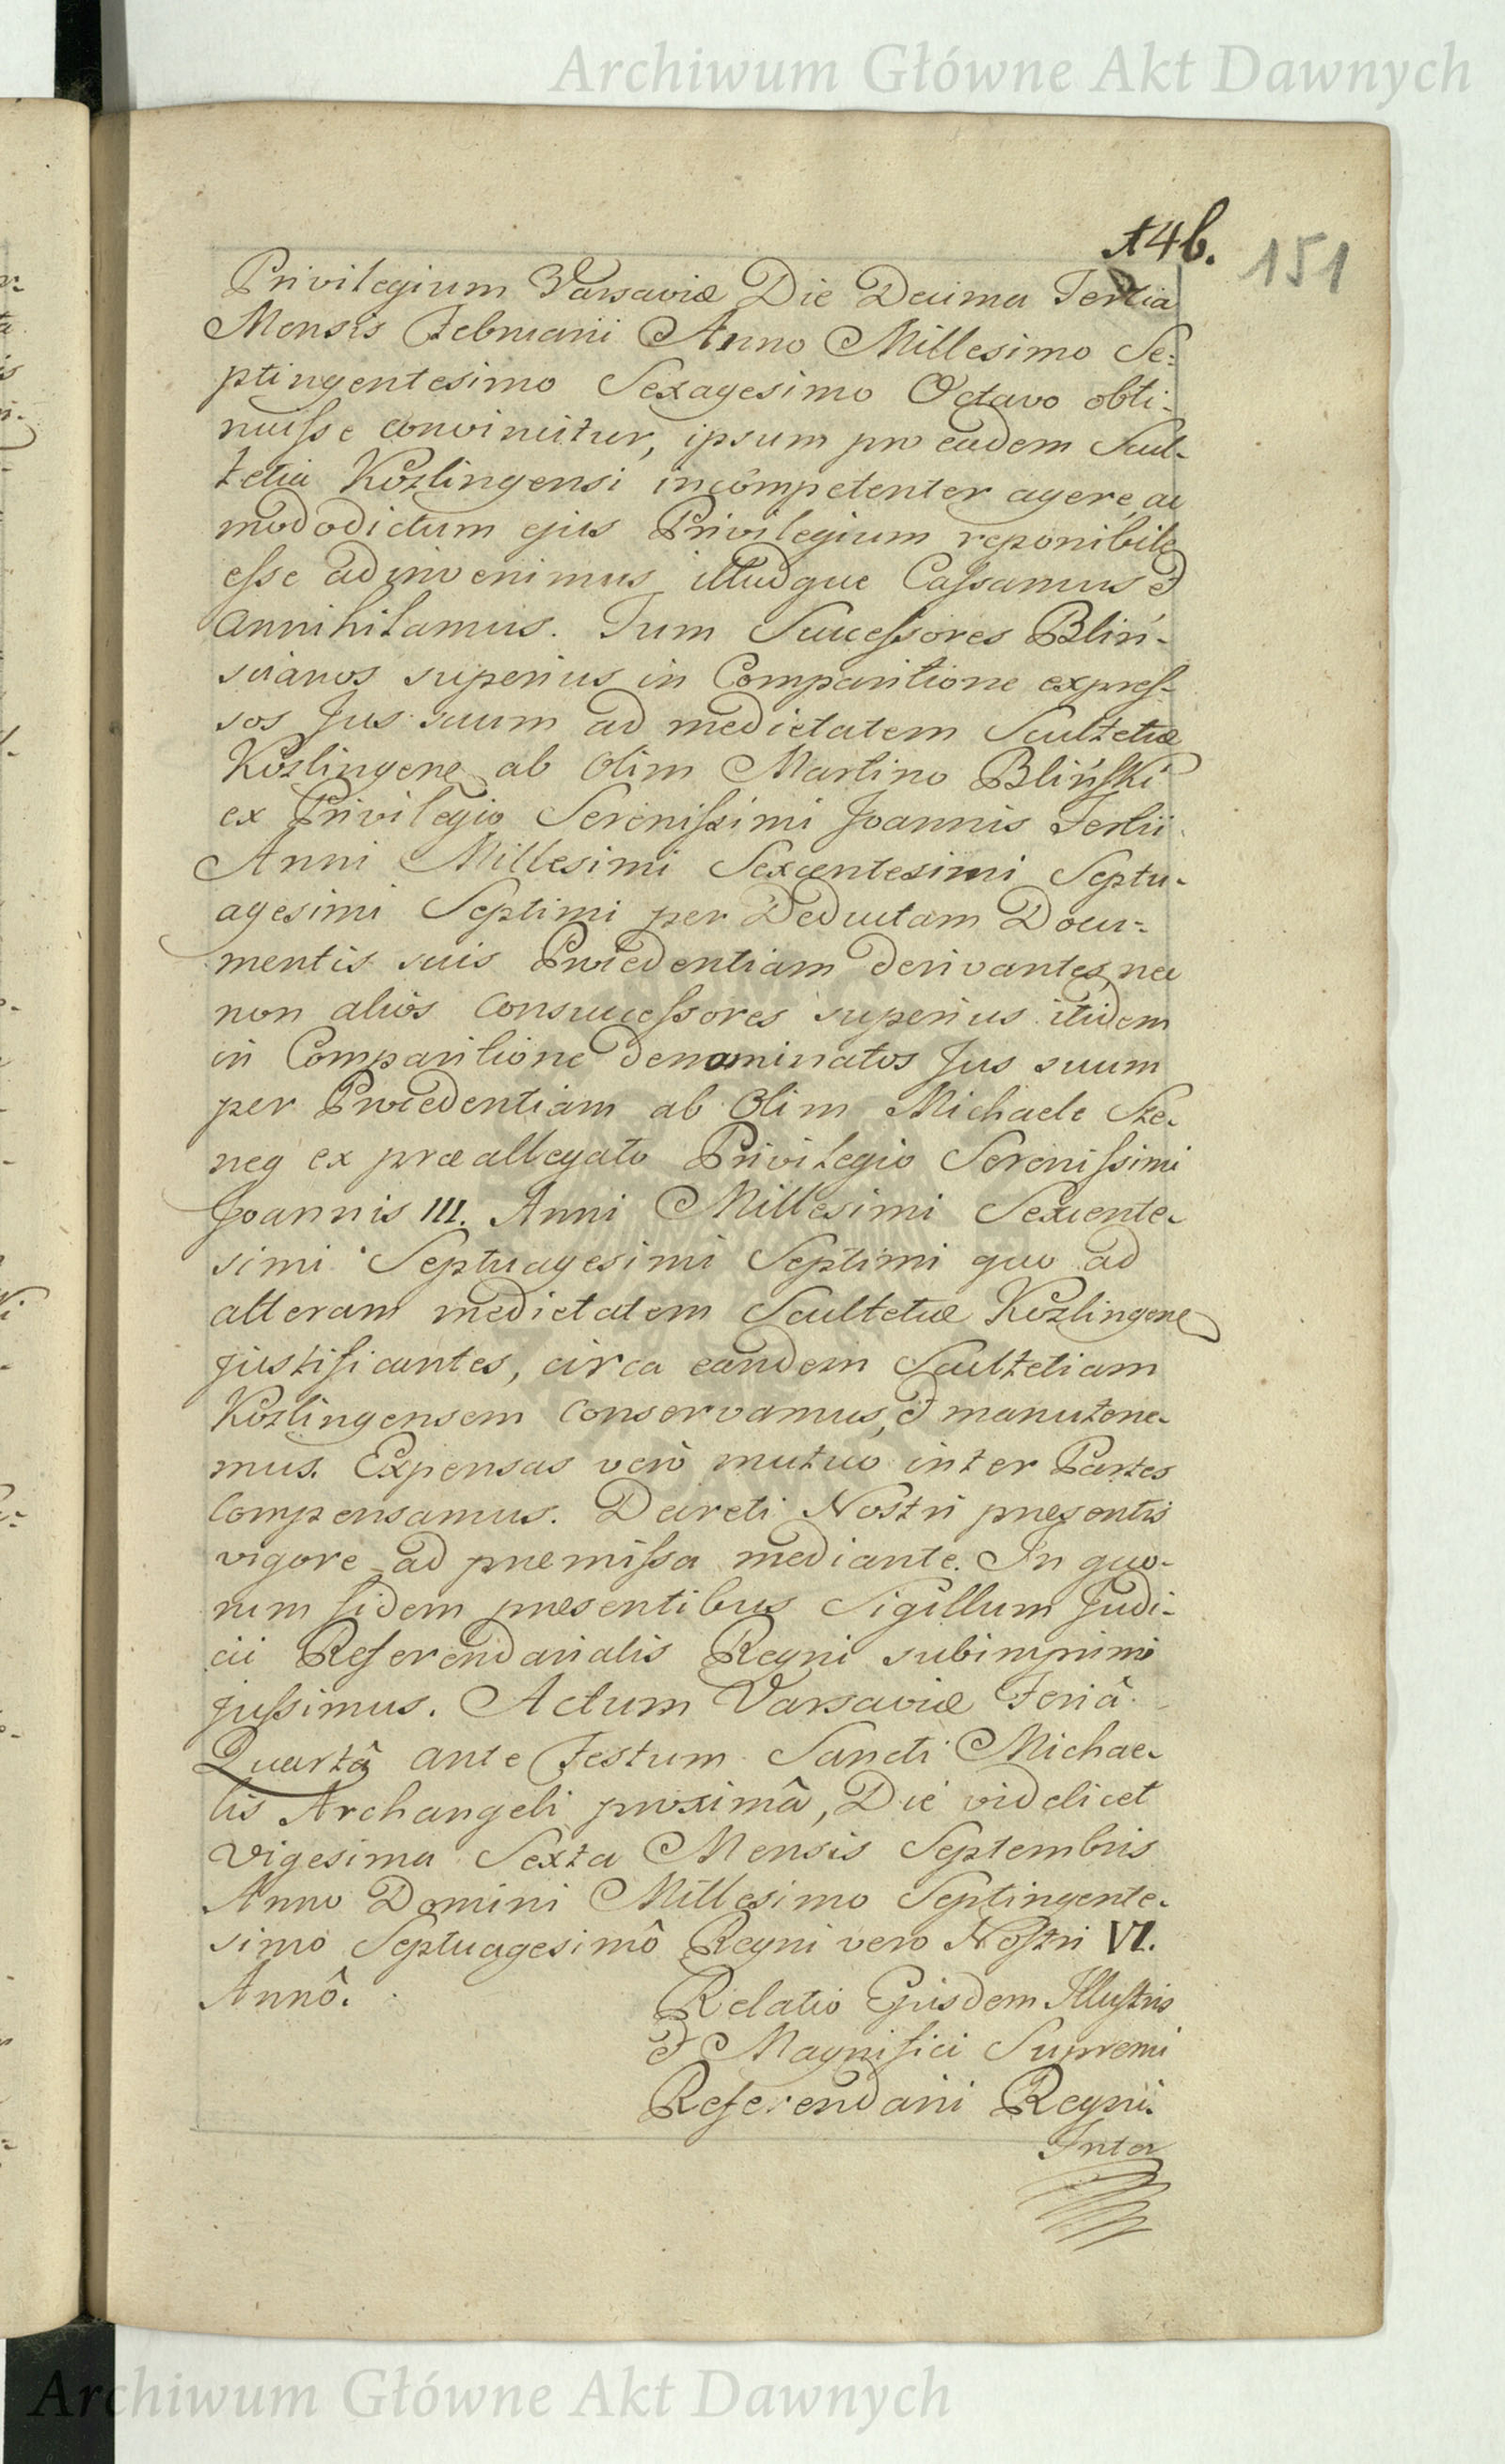 Archiwum Główne Akt Dawnych
146.
151
Privilegium Varsaviæ Die Decima Tertia
Mensis Februarii Anno Millesimo Se-
ptingentesimo Sexagesimo Octavo obti-
nuisse convincitur, ipsum pro eadem Scul-
tetia Kozlingensi incompetenter agere, ac
modo dictum ejus Privilegium reponibile
esse adinvenimus illudque Cassamus &
annihilamus. Tum Successores Bliń-
scianos superius in Comparitione expres-
sos Jus suum ad medietatem Scultetiæ
Kozlingen ab olim Martino Bliński
ex Privilegio Serenissimi Joannis Tertii
Anni Millesimi Sexcentesimi Septu-
agesimi Septimi per Deductam Docu-
mentis suis Procedentiam derivantes, nec
non alios consuccessores superius itidem
in Comparitione denominatos Jus suum
per Procedentiam ab Olim Michaele Sze-
neg ex præallegato Privilegio Serenissimi
Joannis III. Anni Millesimi Sexcente-
simi Septuagesimi Septimi quo ad
alteram medietatem Scultetiæ Kozlingen
justificantes, circa eandem Scultetiam
Kozlingensem conservamus, & manutene-
mus. Expensas verò mutuo inter Partes
compensamus. Decreti Nostri præsentis
vigore ad præmissa mediante. In quo-
rum fidem præsentibus Sigillum Judi-
cii Referendarialis Regni subimprimi
jussimus. Actum Varsaviæ Feriâ
Quartâ ante Festum Sancti Michae-
lis Archangeli proximâ, Die videlicet
Vigesima Sexta Mensis Septembris
Anno Domini Millesimo Septingente-
simo Septuagesimô Regni vero Nostri VI.
Annô.
Relatio Ejusdem Illustris
& Magnifici Supremi
Referendarii Regni.
Inter
Archiwum Główne Akt Dawnych